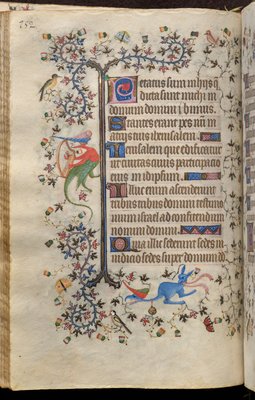 252
Letatus sum in hijs q
dicta sunt michi in
domum domini ibimus.
Stantes erant pedes nri in
atriis tuis iherusalem.
Iherusalem que edificatur
ut ciuitas cuius participatio
eius in idipsum.
Illuc enim ascenderunt
tribus tribus domini testimo
nium israel ad confitendum
nomini domini.
Quia illic sederunt sedes in
iudicio sedes super domum d